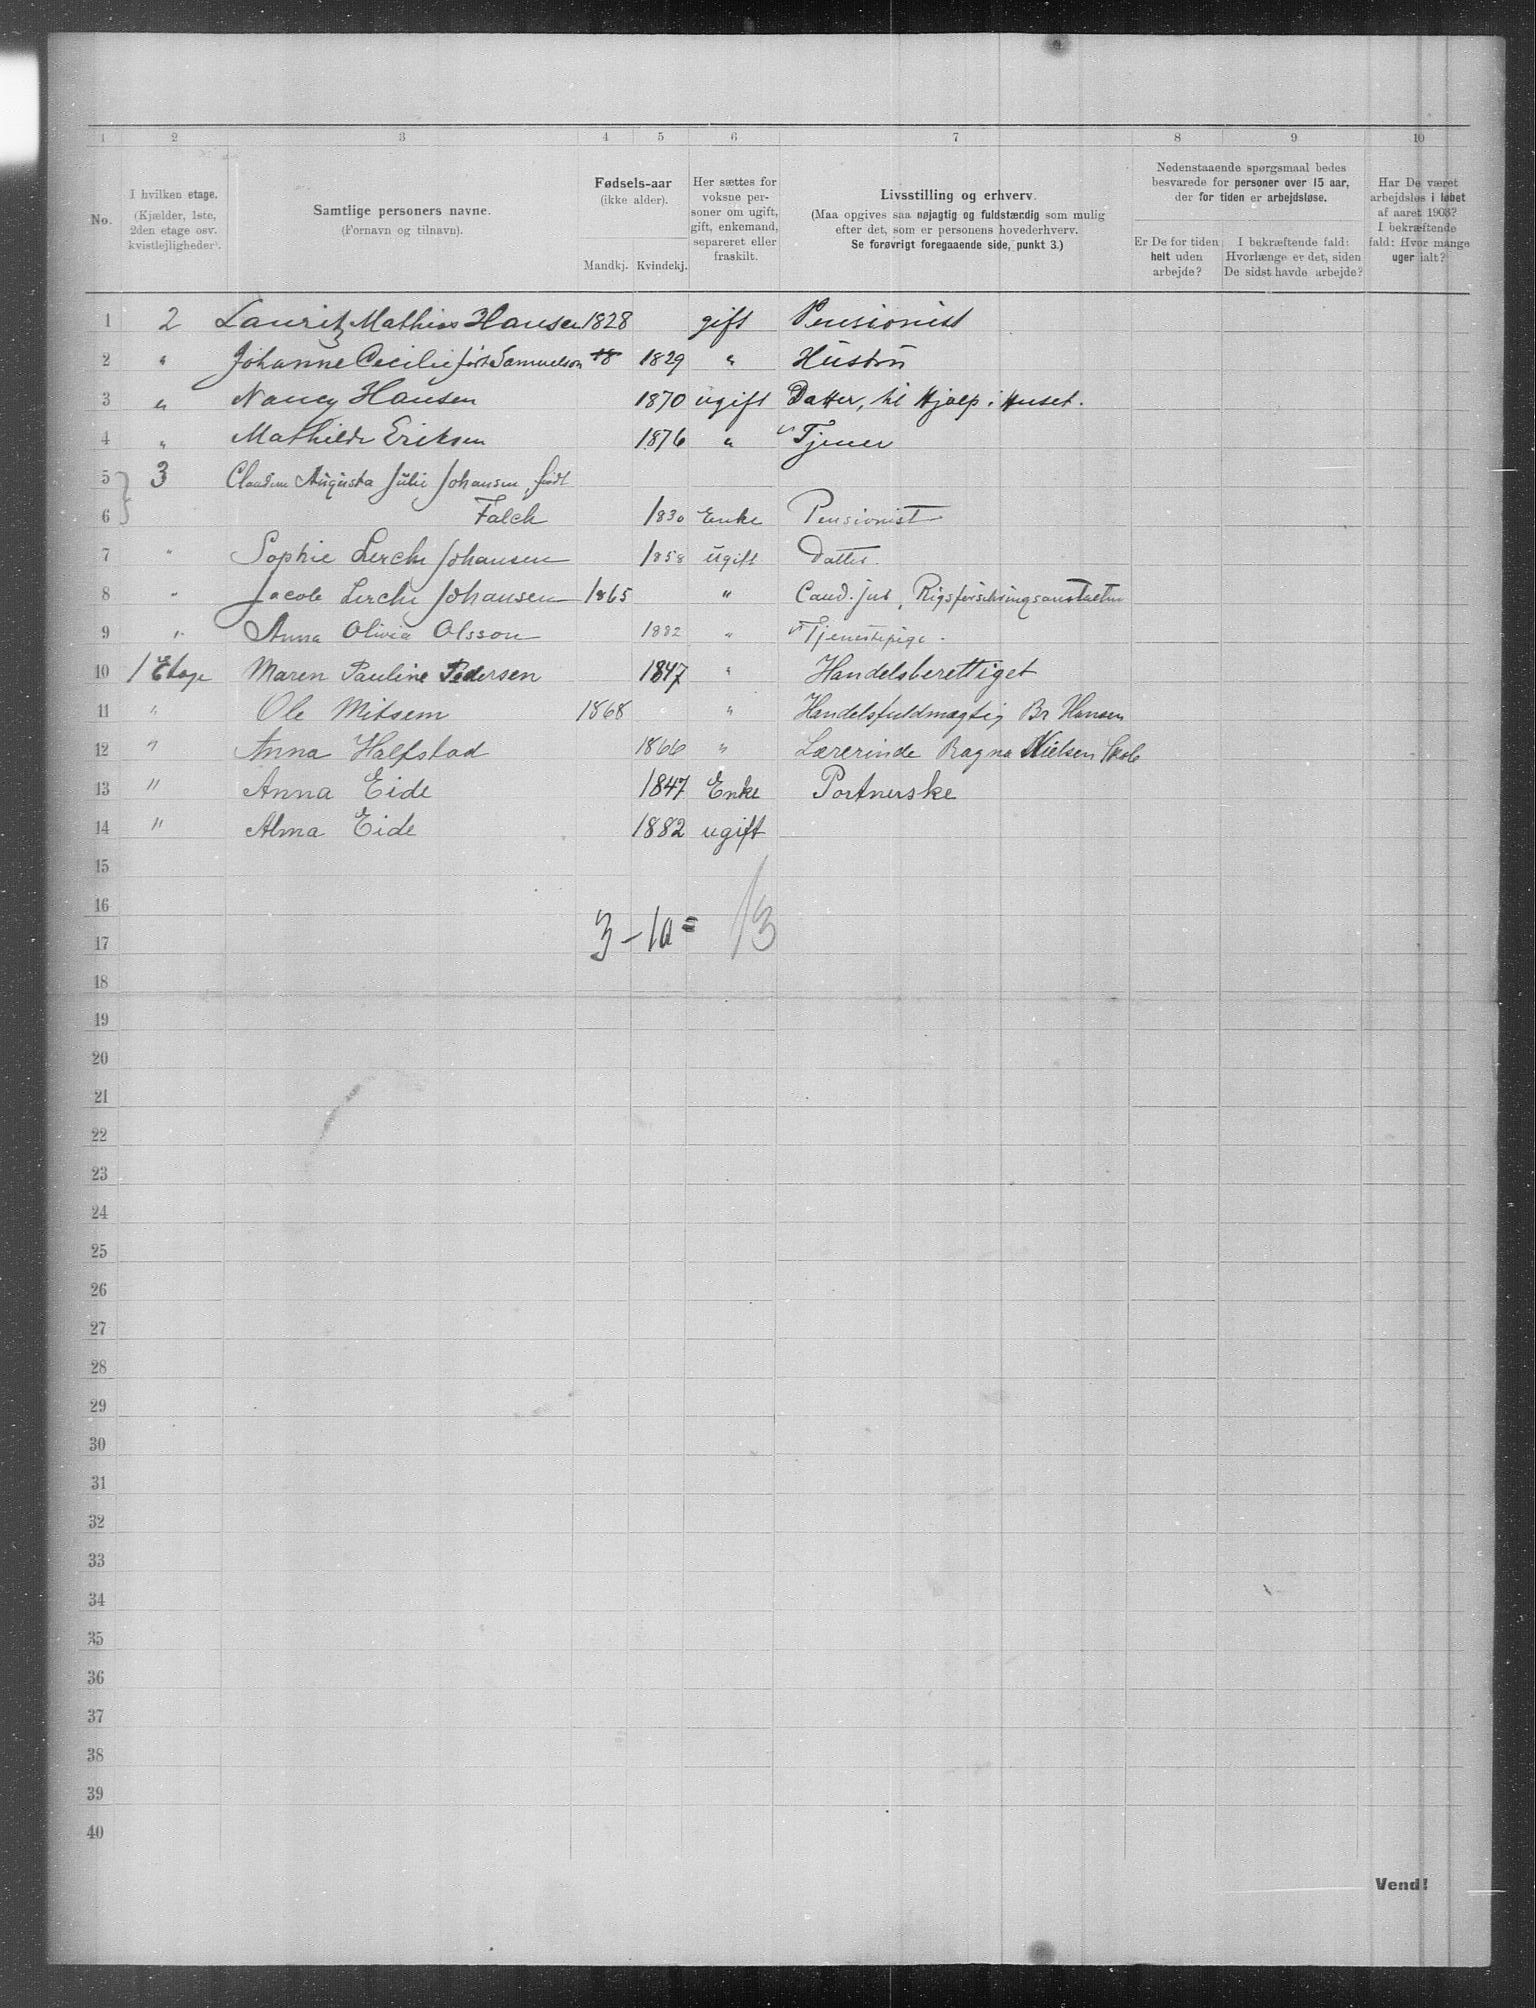 1 2 3 4 5 6 7 8 9 10
No.
I hvilken etage.
(Kjælder, 1ste,
2den etage osv.
kvistlejligheder).
Samtlige personers navne.
(Fornavn og tilnavn).
Fødsels-aar
(ikke alder).
Mandkj. Kvindekj.
Her sættes for
voksne per-
soner om ugift,
gift, enkemand,
separeret eller
fraskilt.
Livsstilling og erhverv.
(Maa opgives saa nøjagtig og fuldstændig som mulig
efter det, som er personens hovederhverv.
Se forøvrigt foregaaende side, punkt 3.)
Nedenstaaende spørgsmaal bedes
besvarede for personer over 15 aar,
der for tiden er arbejdsløse.
Er De for tiden
helt uden
arbejde?
I bekræftende fald:
Hvorlænge er det, siden
De sidst havde arbejde?
Har De været
arbejdsløs i løbet
af aaret 1903?
I bekræftende
fald: Hvor mange
uger ialt?
1 2 Lauritz Mathias Hansen 1828 gift Pensionist
2 " Johanne Cecilie født Samuelson 18 1829 " Hustru
3 " Nancy Hansen 1870 ugift Datter, til Hjælp i Huset.
4 " Mathilde Eriksen 1876 " Tjener
5 3 Claudine Augusta Julie Johansen, født
6 Falch 1830 Enke Pensionist
7 " Sophie Lerche Johansen 1858 ugift Datter.
8 " Jacob Lerche Johansen 1865 " Cand. jur, Rigsforsikringsanstalten
9 " Anna Olivia Olsson 1882 " Tjenestepige.
10 1 Etage Maren Pauline Pedersen 1847 " Handelsberettiget
11 " Ole Mitsem 1868 " Handelsfuldmægtig Br Hansen
12 " Anna Halfstad 1866 " Lærerinde Ragna Nielsen Skole
13 " Anna Eide 1847 Enke Portnerske
14 " Alma Eide 1882 ugift
15
16
3 - 10 = 13
17
18
19
20
21
22
23
24
25
26
27
28
29
30
31
32
33
34
35
36
37
38
39
40
Vend!